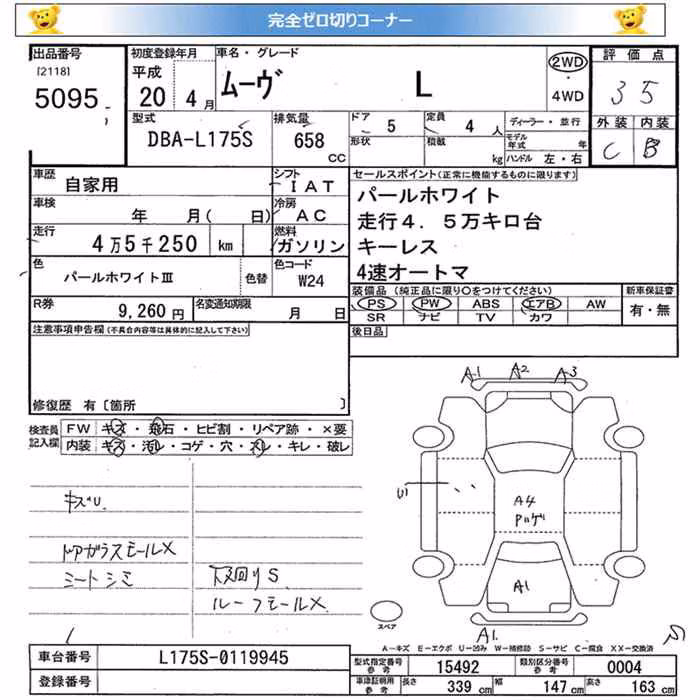 完全ゼロ切りコーナー
出品番号 初度登録年月 車名・グレード 評価点
[2118] 平成 ムーヴ L 2WD 3 5
5095 20 4月 4WD
型式 排気量 ドア 5 定員 4 人 ディーラー・並行 外装 内装
DBA-L175S 658 CC 形状 積載 kg モデル年式 年 C B
ハンドル 左・右
車歴 自家用 シフト IAT セールスポイント(正常に機能するものに限ります)
車検 年 月( 日) 冷房 AC パールホワイト
走行 4万5千250 km 燃料 ガソリン 走行4.5万キロ台
キーレス
色 パールホワイトⅢ 色替 色コード W24 4速オートマ
装備品 (純正品に限り○をつけてください) 新車保証書
R券 9,260円 名変通知期限 月 日 PS PW ABS エアB AW 有・無
SR ナビ TV カワ
注意事項申告欄(不具合内容等は具体的に記入して下さい) 後日品
修復歴 有〔箇所 〕
検査員記入欄 FW キズ・飛石・ヒビ割・リペア跡・×要
内装 キズ・汚レ・コゲ・穴・スレ・キレ・破レ
A1 A2 A3
キズU
U1
A4
ドアガラスモールX
シートシミ 下廻りS
ルーフモールX
A1
スペア
A1
S
A－キズ E－エクボ U－凹み W－補修跡 S－サビ C－腐食 XX－交換済
車台番号 L175S-0119945 型式指定番号 参考 15492 類別区分番号 参考 0004
登録番号 車庫証明用 参考 長さ 339 cm 幅 147 cm 高さ 163 cm